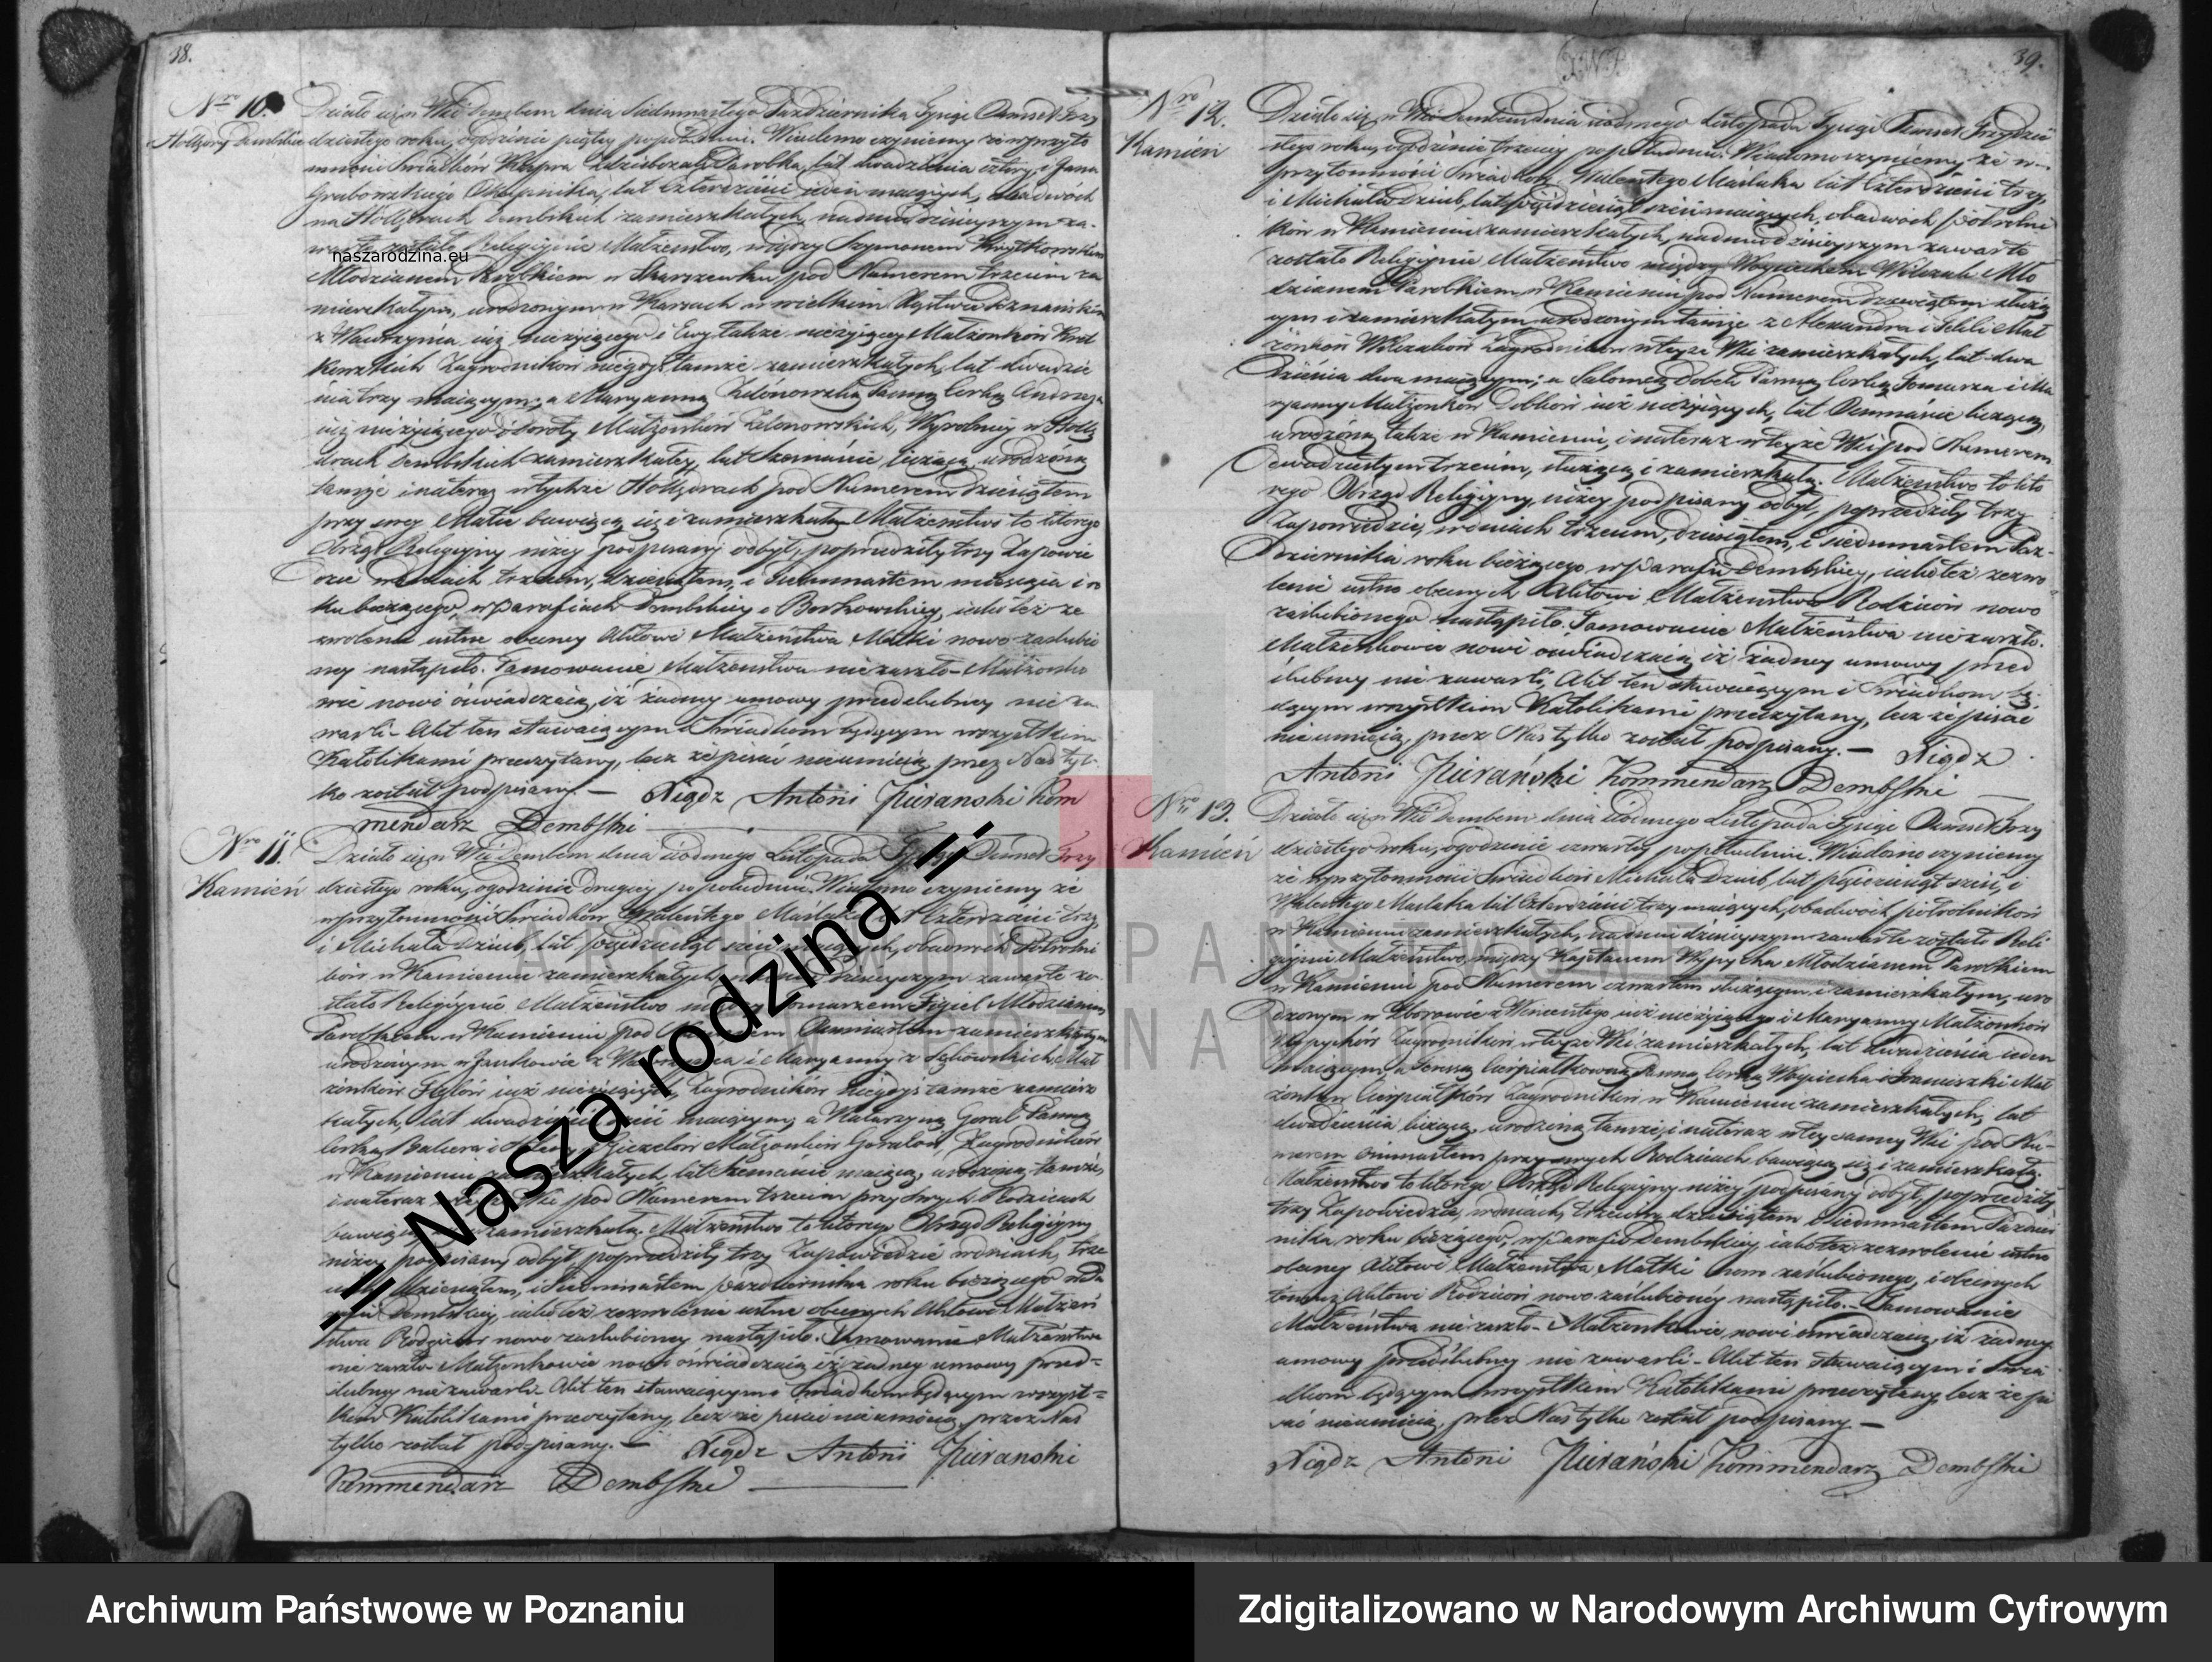 38.
Nro 10.
Hollgory Dembskie
Działo się w Wsi Dembem dnia Siedmnastego Października Tysiąc Osmset Trzy
dziestego roku, o godzinie piątey popołudniu. Wiadomo czyniemy że w przyto
mności Świadków Parobka, lat dwadzieścia cztery, i Jana
Grabowskiego lat Czterdzieści ieden maiących, obudwóch
na Hollgorach Dembskich zamieszkałych, na dniu dzisieyszym za-
warte zostało Religijnie Małżeństwo, między Szymonem
Młodzianem Parobkiem w Skarszewku pod Numerem trzecim za
mieszkałym, urodzonym w w wielkim Xięstwie Poznańskim
z Wawrzyńca iuż nieżyiącego i Ewy także nieżyiącey Małżonków
Zagrodników niegdyś tamże zamieszkałych, lat dwadzie
ścia trzy maiącym; a Maryanną Panną Córką Andrzeja
iuż nieżyiącego i Doroty Małżonków Wyrobnicy w Holl
drach Dembskich zamieszkałey, lat liczącą, urodzoną
tamże i na teraz w tychże Hollgorach pod Numerem dziesiątem
przy swey Matce bawiącą się i zamieszkałą. Małżeństwo to którego
Obrząd Religijny niżey podpisany odbył, poprzedziły trzy Zapowie
dzie w dniach trzecim, dziesiątem, i Siedmnastem miesiąca i ro
ku bieżącego, w Parafiach Dembskiey i Borkowskiey, iako też ze
zwolenie ustne obecney Aktowi Małżeństwa Matki nowo zaślubio
ney nastąpiło. Tamowanie Małżeństwa nie zaszło - Małżonko
wie nowi oświadczaią, iż żadney umowy przedślubney nie za
warli - Akt ten stawaiącym i Świadkom będącym wszystkim
Katolikami przeczytany, lecz że pisać nieumieią przez Nas tyl-
ko został podpisany. — Xiądz Antoni Pierański Kom
mendarz Dembski
Nro 11.
Kamień
Działo się w Wsi Dembem dnia siódmego Listopada Tysiąc Osmset Trzy
dziestego roku, o godzinie drugiey po południu. Wiadomo czyniemy że
w przytomności Świadków Walentego Maślaka lat Czterdzieści trzy,
i Michała Dziub, lat pięćdziesiąt sześć maiących, obudwóch Półrolni
ków w Kamieniu zamieszkałych, na dniu dzisieyszym zawarte zo-
stało Religijnie Małżeństwo między Tomaszem Figiel Młodzianem
Parobkiem w Kamieniu pod Numerem zamieszkałym
urodzonym w Jankowie z i Maryanny z Małż
żonków iuż nieżyiących, Zagrodników niegdyś tamże zamiesz
kałych, lat dwadzieścia sześć maiącym; a Katarzyną Goral Panną
Córką i Heleny Małżonków Goralów Zagrodników
w Kamieniu zamieszkałych lat maiącą, urodzoną tamże,
i na teraz w teyże Wsi pod Numerem trzecim przy swych Rodzicach
bawiącą się i zamieszkałą. Małżeństwo to którego Obrząd Religijny
niżey podpisany odbył poprzedziły trzy Zapowiedzie w dniach trze
cim, dziesiątem, i Siedmnastem października roku bieżącego w Pa
rafii Dembskiey, iako też zezwolenie ustne obecnych Aktowi Małżeń
stwa Rodziców nowo zaślubioney nastąpiło. Tamowanie Małżeństwa
nie zaszło - Małżonkowie nowi oświadczaią iż żadney umowy przed-
ślubney nie zawarli - Akt ten stawaiącym i Świadkom będącym wszyst-
kim Katolikami przeczytany, lecz że pisać nie umieią, przez Nas
tylko został podpisany. — Xiądz Antoni Pierański
Kommendarz Dembski
39.
Nro 12.
Kamień
Działo się w Wsi Dembem dnia siódmego Listopada Tysiąc Osmset Trzydzie
stego roku, o godzinie trzeciey popołudniu. Wiadomo czyniemy że w
przytomności Świadków Walentego Maślaka lat Czterdzieści trzy,
i Michała Dziub, lat pięćdziesiąt sześć maiących, obudwóch półrolni
ków w Kamieniu zamieszkałych, na dniu dzisieyszym zawarte
zostało Religijnie Małżeństwo między Woyciechem Wilczak Mło
dzianem Parobkiem w Kamieniu pod Numerem dziewiątem służą
cym i zamieszkałym urodzonym tamże z Alexandra i Mał
żonków Wilczaków Zagrodników w teyże Wsi zamieszkałych, lat dwa
dzieścia dwa maiącym; a Salomeą Dobek Panną Córką Tomasza i Ma
ryanny Małżonków Dobków iuż nieżyiących, lat Osmnaście liczącą,
urodzoną także w Kamieniu, i na teraz w teyże Wsi pod Numerem
dwudziestym trzecim, służącą i zamieszkałą. Małżeństwo to któ
rego Obrząd Religijny niżey podpisany odbył, poprzedziły trzy
Zapowiedzie, w dniach trzecim, dziesiątem, i siedmnastem Paź-
dziernika roku bieżącego w Parafii Dembskiey, iako też zezwo
lenie ustne obecnych Aktowi Małżeństwa Rodziców nowo
zaślubionego nastąpiło. Tamowanie Małżeństwa nie zaszło.
Małżonkowie nowi oświadczaią iż żadney umowy przed
ślubney nie zawarli, Akt ten stawaiącym i Świadkom bę-
dącym wszystkim Katolikami przeczytany, lecz że pisać
nie umieią, przez Nas tylko został podpisany. — Xiądz
Antoni Pierański Kommendarz Dembski
Nro 13.
Kamień
Działo się w Wsi Dembem dnia siódmego Listopada Tysiąc Osmset Trzy
dziestego roku, o godzinie czwartey popołudniu. Wiadomo czyniemy
że w przytomności Świadków Michała Dziub, lat pięćdziesiąt sześć, i
Walentego Maślaka lat Czterdzieści trzy maiących, obudwóch półrolników
w Kamieniu zamieszkałych, na dniu dzisieyszym zawarte zostało Reli
gijnie Małżeństwo, między Kajetanem Wypycha Młodzianem Parobkiem
w Kamieniu pod Numerem czwartem służącym i zamieszkałym, uro
dzonym w Zborowie z Wincentego iuż nieżyiącego i Maryanny Małżonków
Wypychów Zagrodników w teyże Wsi zamieszkałych, lat dwadzieścia ieden
maiącym, a Teresą Cierpiatkowną Panną Córką Woyciecha i Franciszki Mał
żonków Zagrodników w Kamieniu zamieszkałych, lat
dwadzieścia liczącą, urodzoną tamże, i na teraz w tey samey Wsi pod Nu-
merem ósmnastem przy swych Rodzicach bawiącą się i zamieszkałą.
Małżeństwo to którego Obrząd Religijny niżey podpisany odbył, poprzedziły
trzy Zapowiedzie, w dniach, trzecim, dziesiątem i Siedmnastem Paździer
nika, roku bieżącego, w Parafii Dembskiey, iako też zezwolenie ustne
obecney Aktowi Małżeństwa Matki nowo zaślubionego, i obecnych
temuż Aktowi Rodziców nowo zaślubioney nastąpiło. - Tamowanie
Małżeństwa nie zaszło - Małżonkowie nowi oświadczaią, iż żadney
umowy przedślubney nie zawarli - Akt ten stawaiącym i Świa
dkom będącym wszystkim Katolikami przeczytany, lecz że pi
sać nieumieią, przez Nas tylko został podpisany —
Xiądz Antoni Pierański Kommendarz Dembski
naszarodzina.eu
:: Nasza rodzina ::
ARCHIWUM PAŃSTWOWE
W POZNANIU
Archiwum Państwowe w Poznaniu
Zdigitalizowano w Narodowym Archiwum Cyfrowym